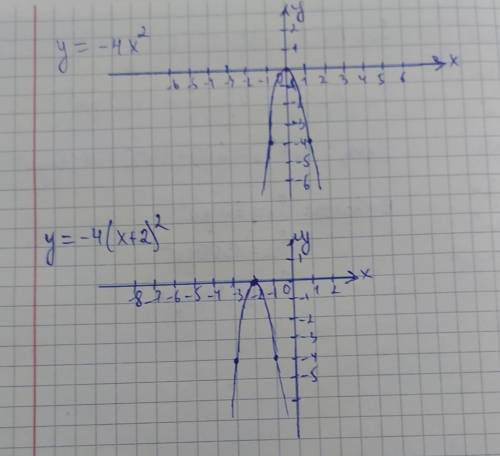 y = -4x²
y
2
1
-6 -5 -4 -3 -2 -1 0 1 2 3 4 5 6 x
-2
-3
-4
-5
-6
y = -4(x+2)²
y
1
-8 -7 -6 -5 -4 -3 -2 -1 0 1 2 x
-1
-2
-3
-4
-5